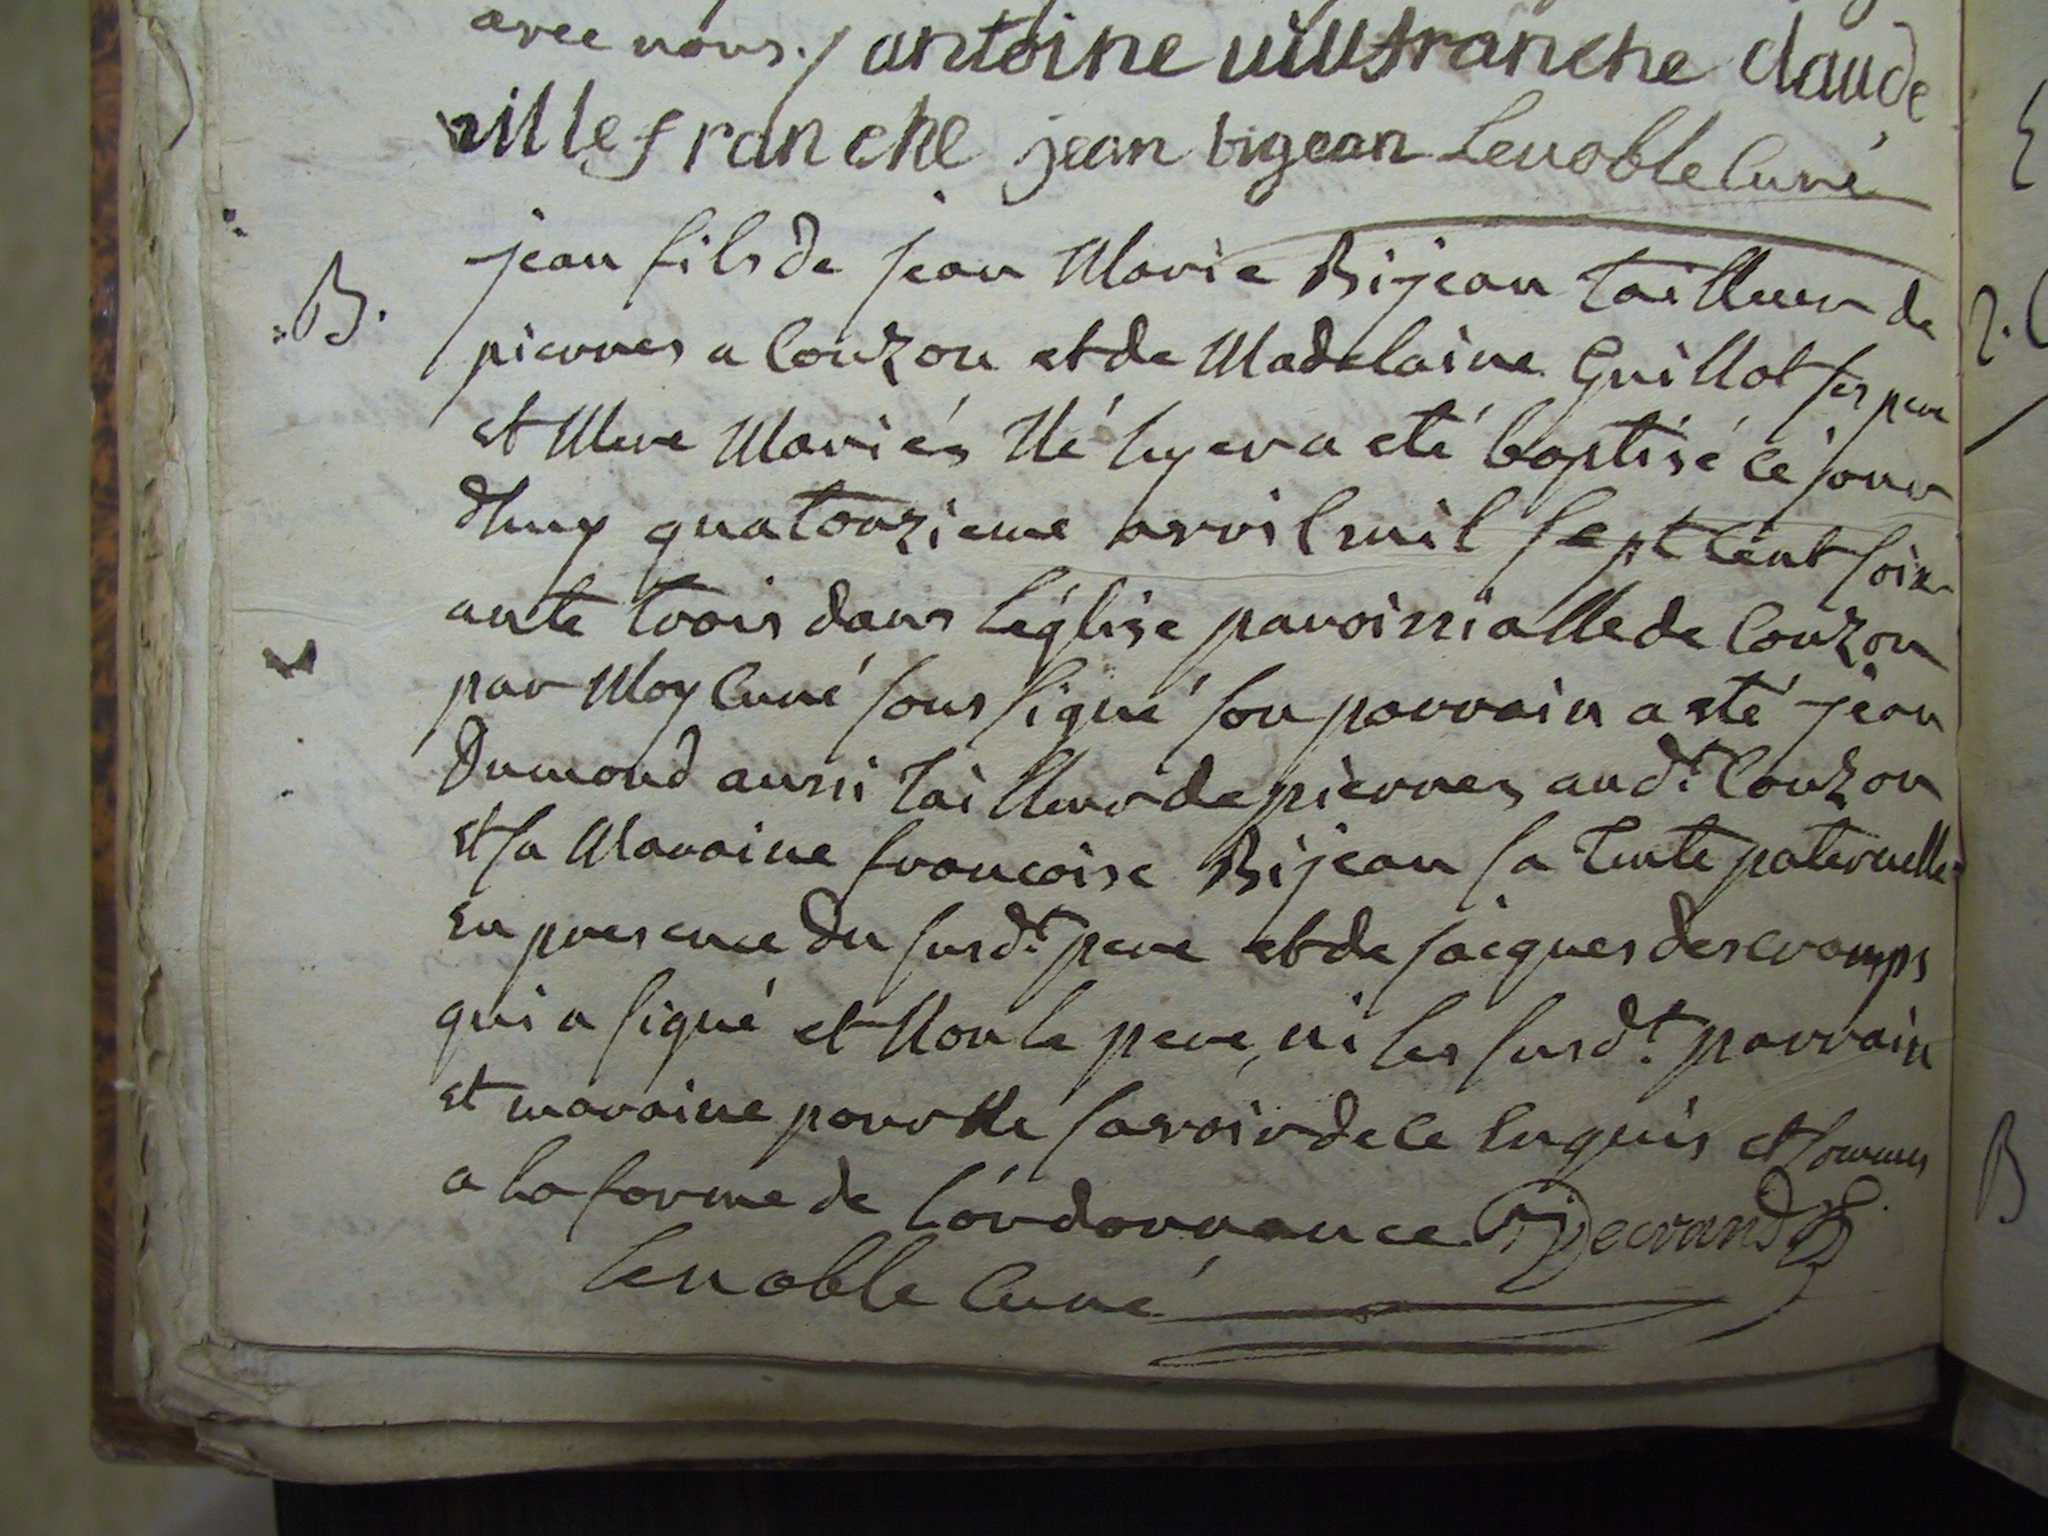 avec nous. / antoine villefranche claude
villefranche jean bigean Lenoble Curé
B.
jean fils de jean Marie Bijean tailleur de
pierres a Couzon et de Madelaine Guillot ses pere
et Mere Mariés Né hyer a eté baptisé ce jour
dhuy quatorzieme avril mil sept cent soix
ante trois dans l'église paroissialle de Couzon
par Moy Curé sous signé son parrain a eté jean
Dumond aussi tailleur de pierres aud.t Couzon
et sa Maraine francoise Bijean sa tente paternelle
en presence du susd.t pere et de jacques descramps
qui a signé et Non le pere, ni les susd.t parrain
et maraine pour Ne savoir de ce Enquis et sommes
a la forme de l'ordonnance
Lenoble Curé
B